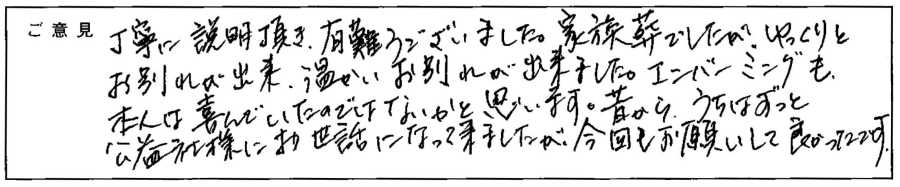 ご意見
丁寧に説明頂き、有難うございました。家族葬でしたが、ゆっくりと
お別れが出来、温かいお別れが出来ました。エンバーミングも、
本人は喜んでいたのではないかと思います。昔から、うちはずっと
公益社様にお世話になって来ましたが、今回もお願いして良かったです。